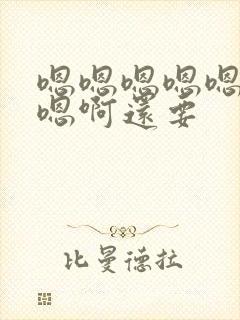 嗯嗯嗯嗯嗯
嗯啊還要
比曼德拉